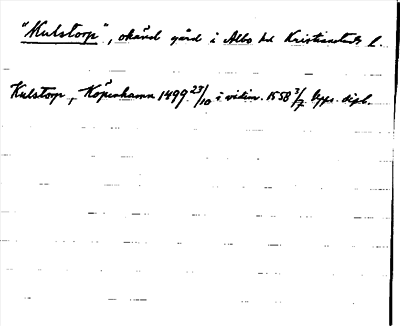 "Kulstorp", okänd gård i Albo hd Kristianstads l.
Kulstorp, Köpenhamn 1499 23/10 i vidim. 1558 3/7 Upps. dipl.